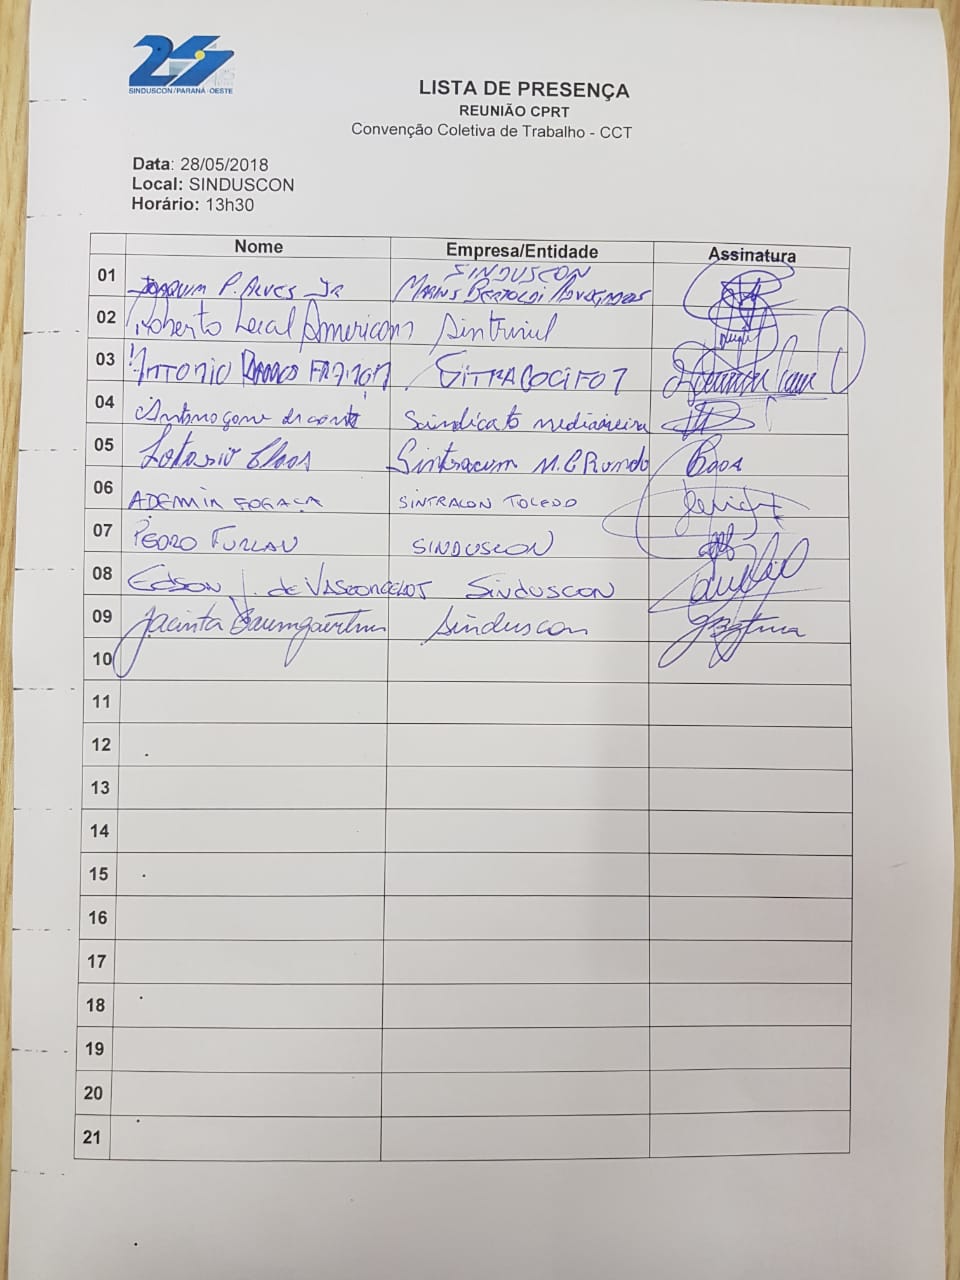 25
SINDUSCON/PARANÁ-OESTE
LISTA DE PRESENÇA
REUNIÃO CPRT
Convenção Coletiva de Trabalho - CCT
Data: 28/05/2018
Local: SINDUSCON
Horário: 13h30
Nome Empresa/Entidade Assinatura
SINDUSCON
01 JOAQUIM P. ALVES JR MARINS BERTOLDI ADVOGADOS
02 Roberto Leal Americano Sintrivel
03 ANTONIO RAMOS
04 Sindicato medianeira
05 Lotario Claas Sintracom M.C Rondo Claas
06 ADEMIR FOGAÇA SINTRACON TOLEDO
07 PEDRO FURLAN SINDUSCON
08 EDSON J. de VASCONCELOS SINDUSCON
09 Jacinta Baumgaertner Sinduscon
10
11
12
13
14
15
16
17
18
19
20
21